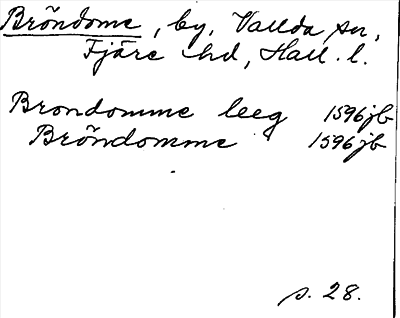 Bröndome, by, Vallda sn,
Fjäre hd, Hall. l.
Brondomme leeg 1596jb
Bröndomme 1596jb
s. 28.